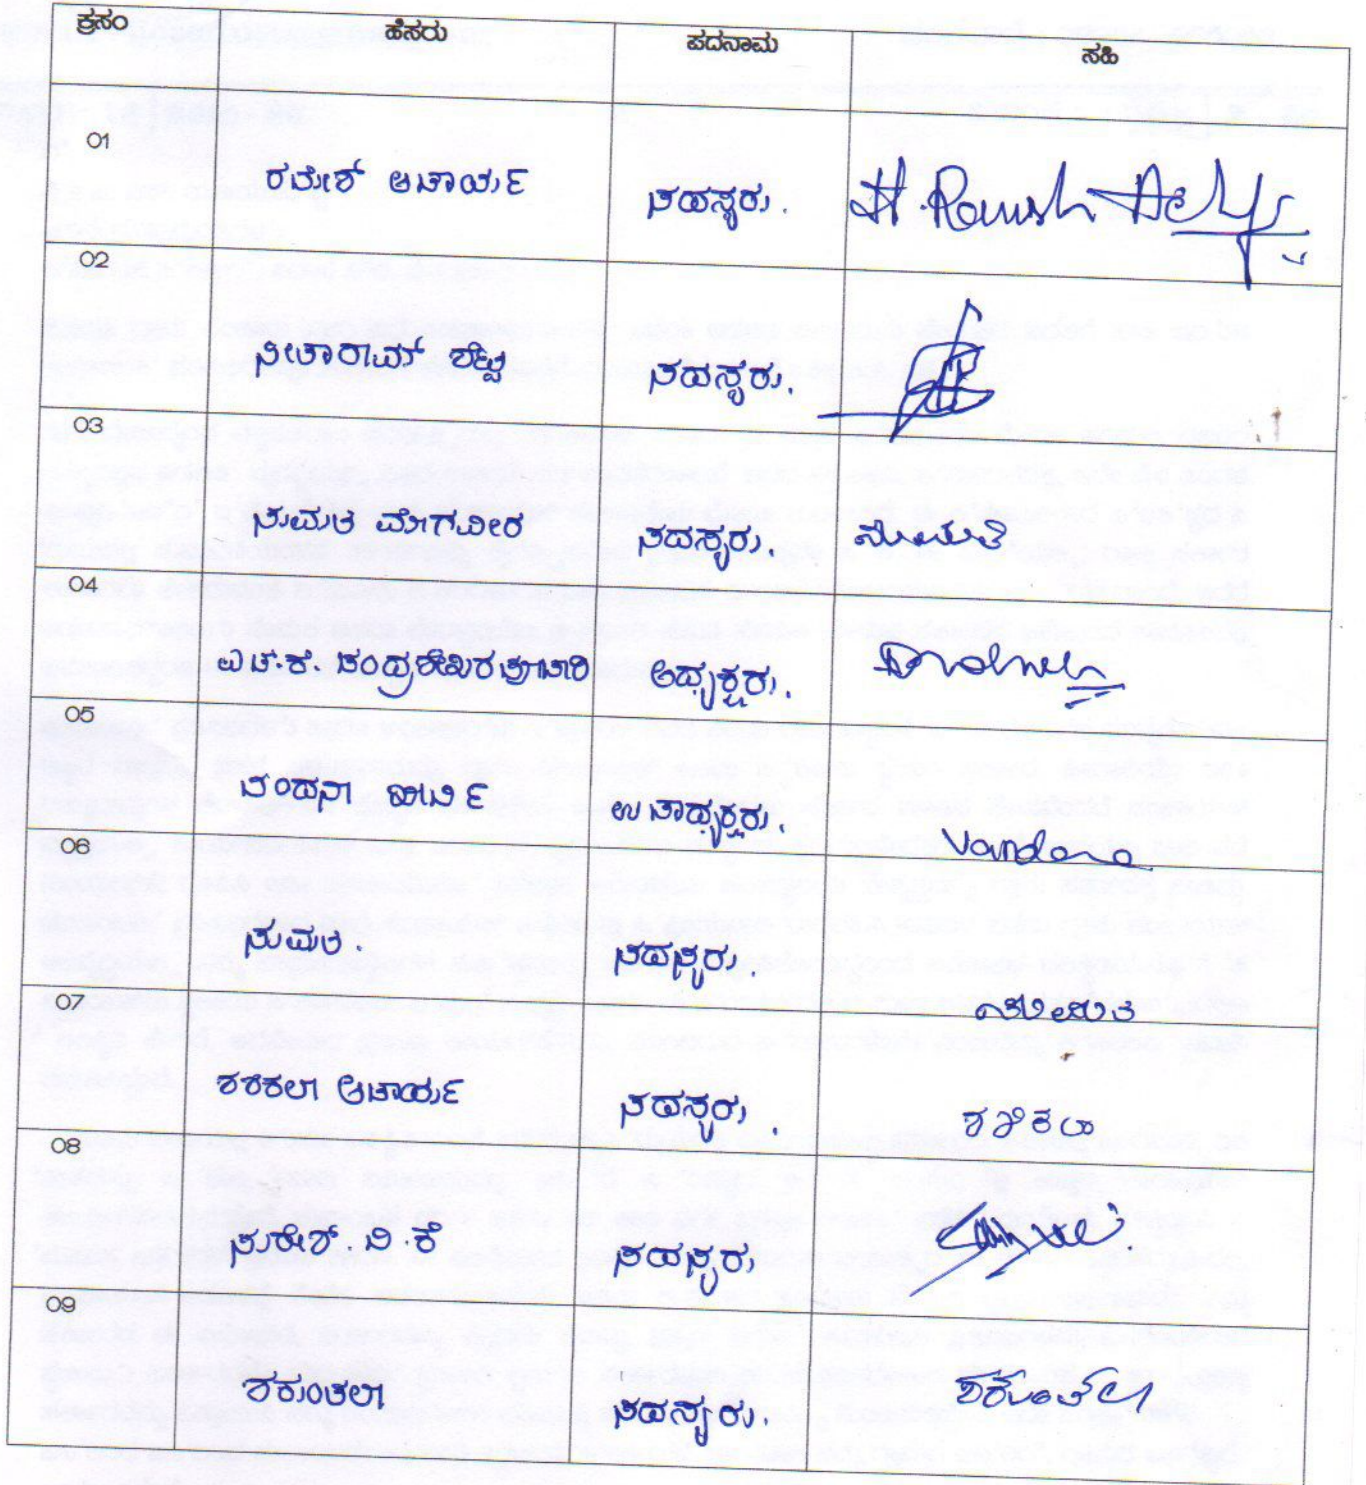 ಕ್ರಸಂ ಹೆಸರು ಪದನಾಮ ಸಹಿ
01 ರಮೇಶ್ ಆಚಾರ್ಯ ಸದಸ್ಯರು. H. Ramesh
02 ಸೀತಾರಾಮ್ ಶೆಟ್ಟಿ ಸದಸ್ಯರು.
03 ಸುಮತಿ ಮೊಗವೀರ ಸದಸ್ಯರು. ಸುಮತಿ
04 ಎಚ್.ಕೆ. ಚಂದ್ರಶೇಖರ ಪೂಜಾರಿ ಅಧ್ಯಕ್ಷರು.
05 ವಂದನಾ ಖಾರ್ವಿ ಉಪಾಧ್ಯಕ್ಷರು. Vandana
06 ಸುಮತಿ. ಸದಸ್ಯರು.
07 ಶಶಿಕಲಾ ಆಚಾರ್ಯ ಸದಸ್ಯರು. ಶಶಿಕಲಾ
08 ಸುರೇಶ್. ವಿ.ಕೆ ಸದಸ್ಯರು.
09 ಶಕುಂತಲಾ ಸದಸ್ಯರು. ಶಕುಂತಲಾ